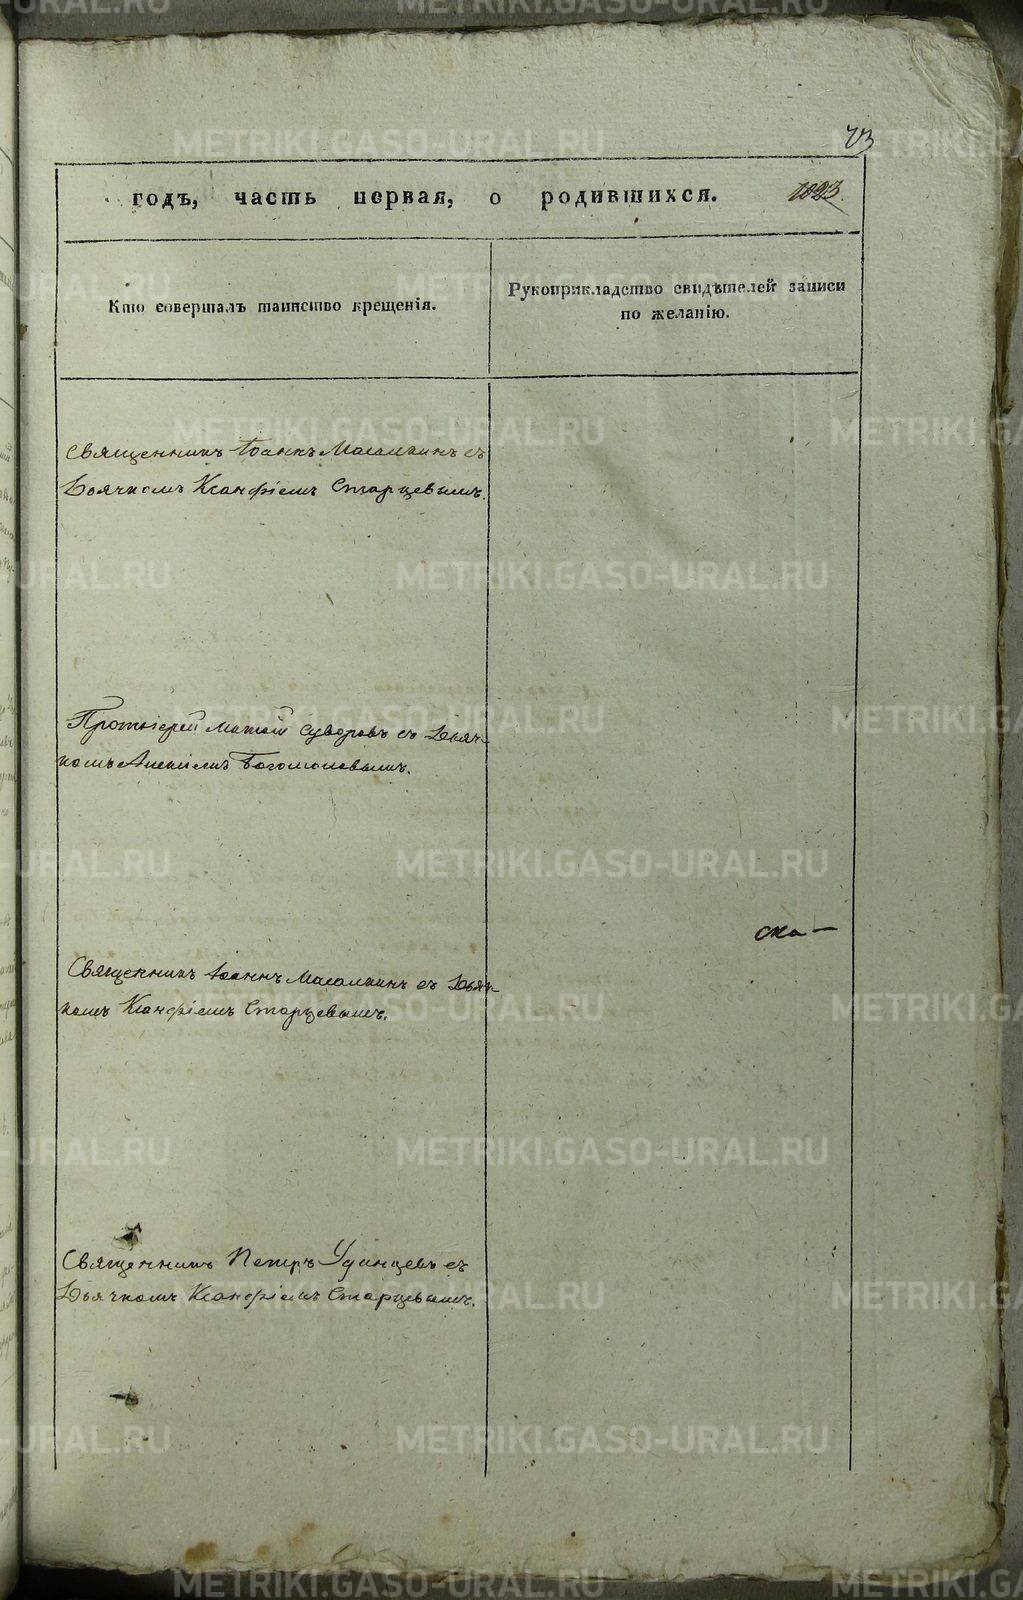 73
годъ, часть первая, о родившихся. 1023.
Кто совершалъ таинство крещенія.
Рукоприкладство свидѣтелей записи
по желанію.
Священникъ Іоаннъ Масалкинъ съ
Дьячкомъ Ксанфіемъ Старцевымъ.
Протоіерей Матѳій Суворовъ съ Дьяч-
комъ Алексіемъ Богомоловымъ.
ска-
Священникъ Іоаннъ Масалкинъ съ Дьяч-
комъ Ксанфіемъ Старцевымъ.
Священникъ Петръ Удинцевъ съ
Дьячкомъ Ксанфіемъ Старцевымъ.
METRIKI.GASO-URAL.RU